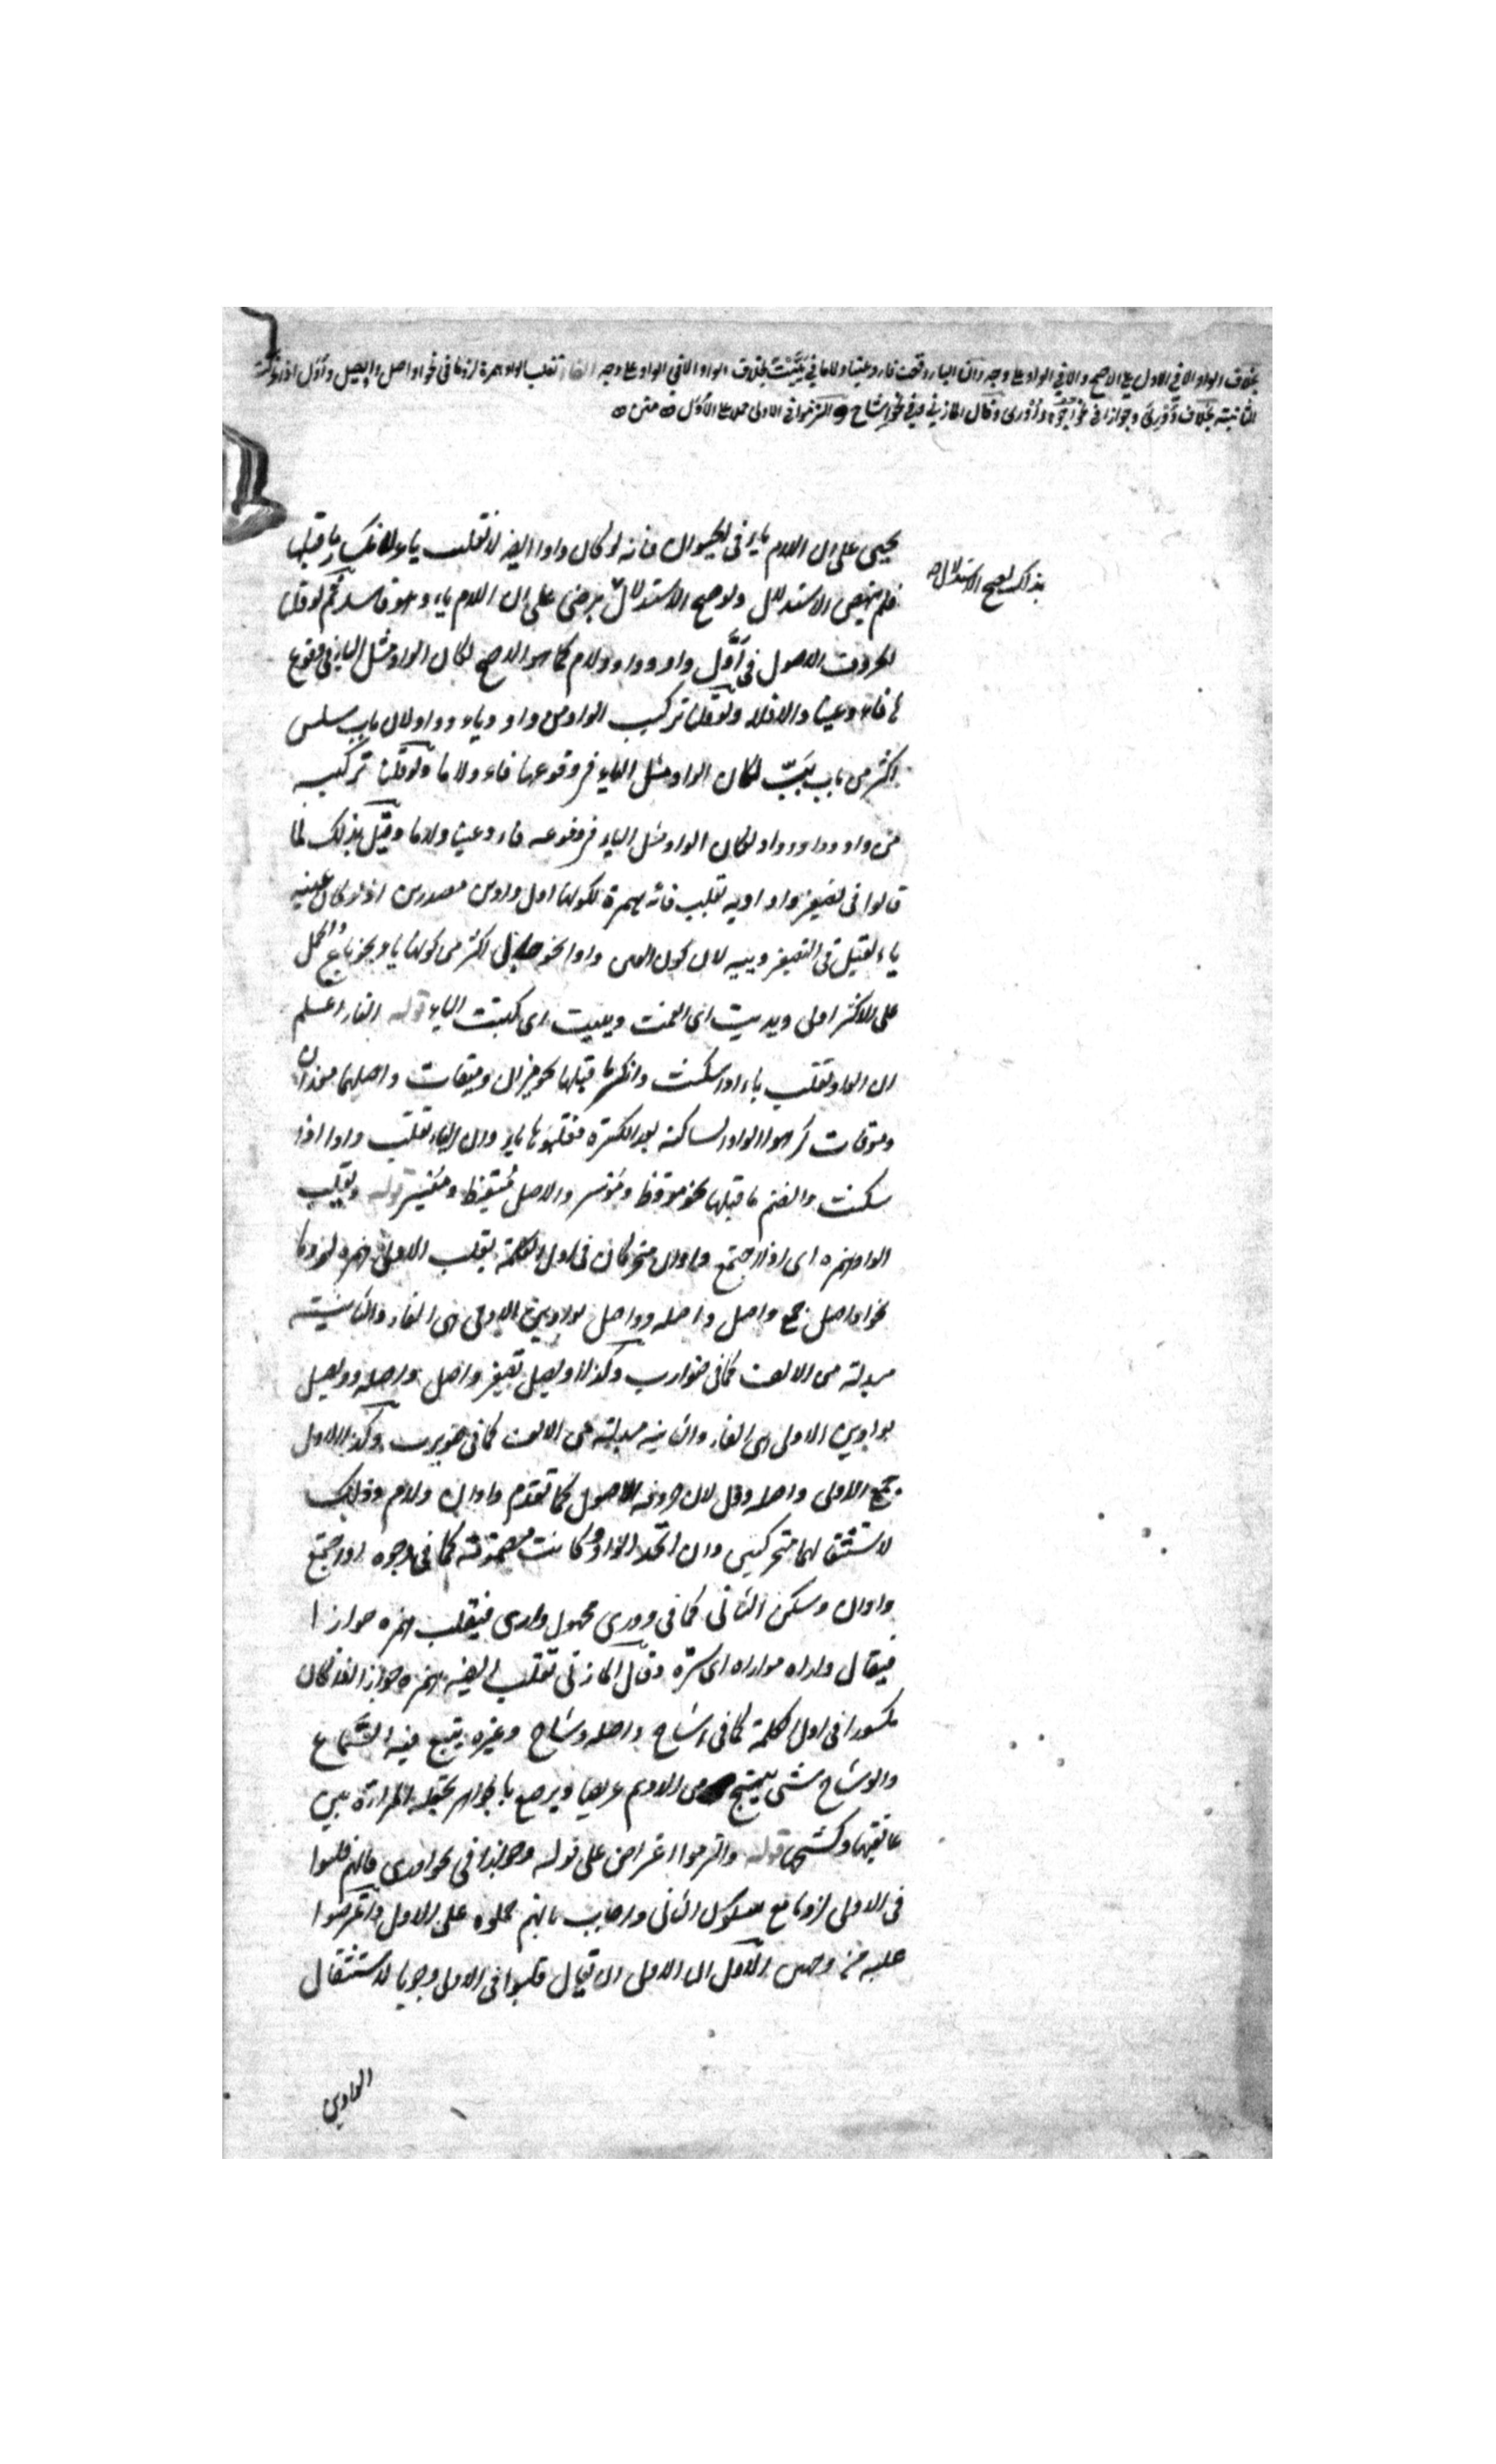 بخلاف الواو الا في الاول على الاصح والا في الواو على وجه وان الياء وقعت فاء وعينا ولاما في يَيَّيْتُ بخلاف الواو الا في الواو على وجه الفاء تقلب الواو همزة لزوما في نحو اواصل واويصل واُوَل اذا تحركت
الثانية بخلاف وُوْرِىَ وجوازا في نحو اُجُوْه واُوْرى وقال المازني وفي نحو اِشاح والتزموا في الاولى حملا على الاُوَل متن
يحيى على ان اللام ياء في الحيوان فانه لو كان واوا ايضا لانقلبت ياء لانكسار ما قبلها
بذاك لصح الاستدلال
فلم ينهض الاستدلال ولو صح الاستدلال برضى على ان اللام ياء وهو فاسد ثم لو قلنا
الحروف الاصول في اَوَّل واو وواو ولام كما هو الاصح لكان الواو مثل الياء في وقوع
ها فاء وعينا والا فلا ولو قلنا تركيب الواو من واو وياء وواو لان باب سلس
اكثر من باب بَبّ لكان الواو مثل الياء في وقوعها فاء ولاما ولو قلنا تركيبه
من واو وواو وواو لكان الواو مثل الياء في وقوعه فاء وعينا ولاما وقيل بذلك لما
قالوا في تصغير واو اوية تقلب فائه همزة لكونها اول واوين مصدرين اذ لو كان عينه
ياء لقيل في التصغير وييه لان كون العين واوا نحو اكثر من كونها ياء نحو باع والحمل
على الاكثر اولى ويديت اى انعمت وييّيت اى كتبت الياء قوله الفاء اعلم
ان الواو تقلب ياء اذا سكنت وانكسر ما قبلها نحو ميزان وميقات واصلهما موزان
وموقات كرهوا الواو الساكنة بعد الكسرة فقلبوها ياء وان الياء تقلب واوا اذا
سكنت وانضم ما قبلها نحو موقظ وموسر والاصل مُيْقِظ ومُيْسِر قوله وتقلب
الواو همزة اى اذا اجتمع واوان متحركان في اول الكلمة يقلب الاولى همزة لزوما
نحو اواصل جمع واصل واصله وواصل بواوين الاولى هى الفاء والثانية
مبدلة من الالف كما في ضوارب وكذا اويصل تصغير واصل واصله وويصل
بواوين الاولى هى الفاء والثانية مبدلة من الالف كما في ضويرب وكذا الاول
جمع الاولى واصله وول لان حروفه الاصول كما تقدم واوان ولام وذلك
لاستثقالهما متحركين وان اتحد الواو وكانت مضمومة كما في اجوه او اجتمع
واوان وسكن الثاني كما في وورى مجهول وارى فيقلب همزة جوازا
فيقال واراه مواراه اى ستره وقال المازني تقلب ايضا همزة جوازا اذا كان
مكسورا في اول الكلمة كما في اشاح واصله وشاح وغيره يتبع فيه السماع
والوشاح شئ ينسج من الاديم عريضا ويرصع بالجواهر تجعله المراة بين
عاتقيها وكشحيها قوله والتزموا اعتراض على قوله وجوازا في نحو اورى فانهم قلبوا
في الاولى لزوما مع سكون الثاني واجاب بانهم حملوه على الاول واعترضوا
عليه من وجهين الاول ان الاولى ان يقال قلبوا في الاولى وجوبا لاستثقال
الواوين